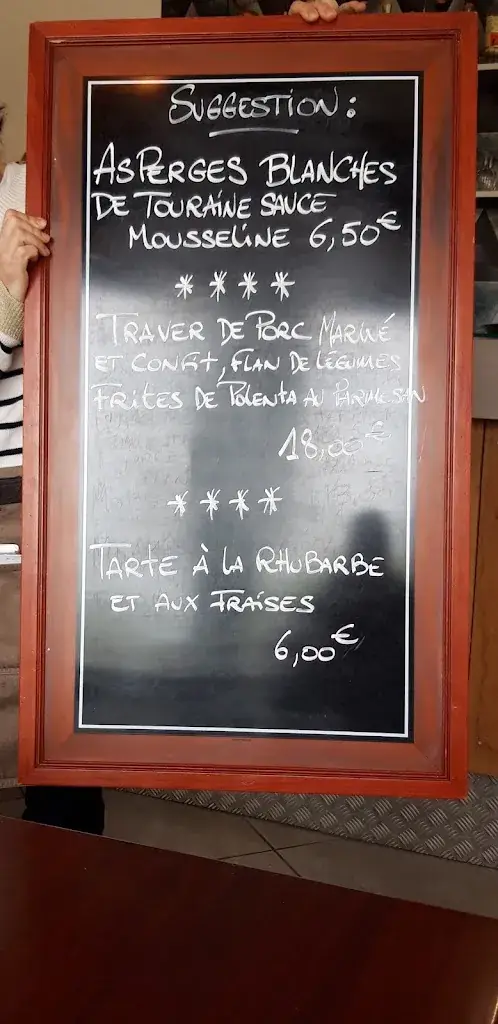 SUGGESTION :
ASPERGES BLANCHES
DE TOURAINE SAUCE
MOUSSELINE 6,50€
****
TRAVER DE PORC MARINÉ
ET CONFIT, FLAN DE LÉGUMES
FRITES DE POLENTA AU PARMESAN
18,00€
****
TARTE À LA RHUBARBE
ET AUX FRAISES
6,00€